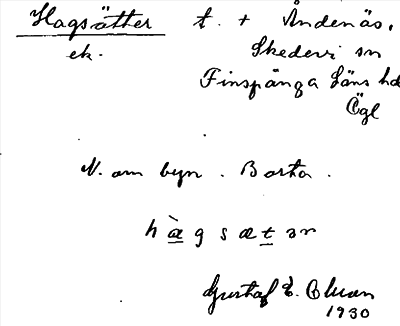 Hagsätter t. + Åndenäs,
ek. Skedevi sn
Finspånga Läns hd
Ögl
N. om byn. Borta.
hàgsætər
Gustaf E.
1930